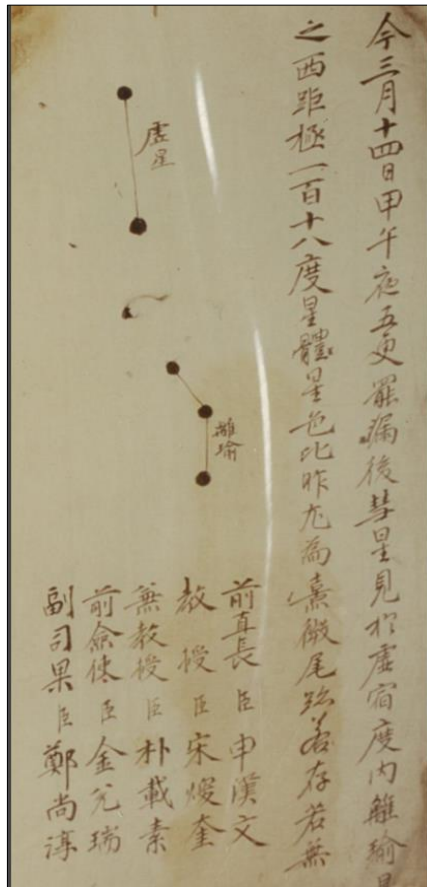 今三月十四日甲午夜五更罷漏後彗星見於虛宿度內離瑜星
之西距極一百十八度星體星色比昨尤為熹微尾跡若存若無
虛星
離瑜
前直長臣申漢文
教授臣宋煥奎
兼教授臣朴載素
前僉使臣金兌瑞
副司果臣鄭尚淳